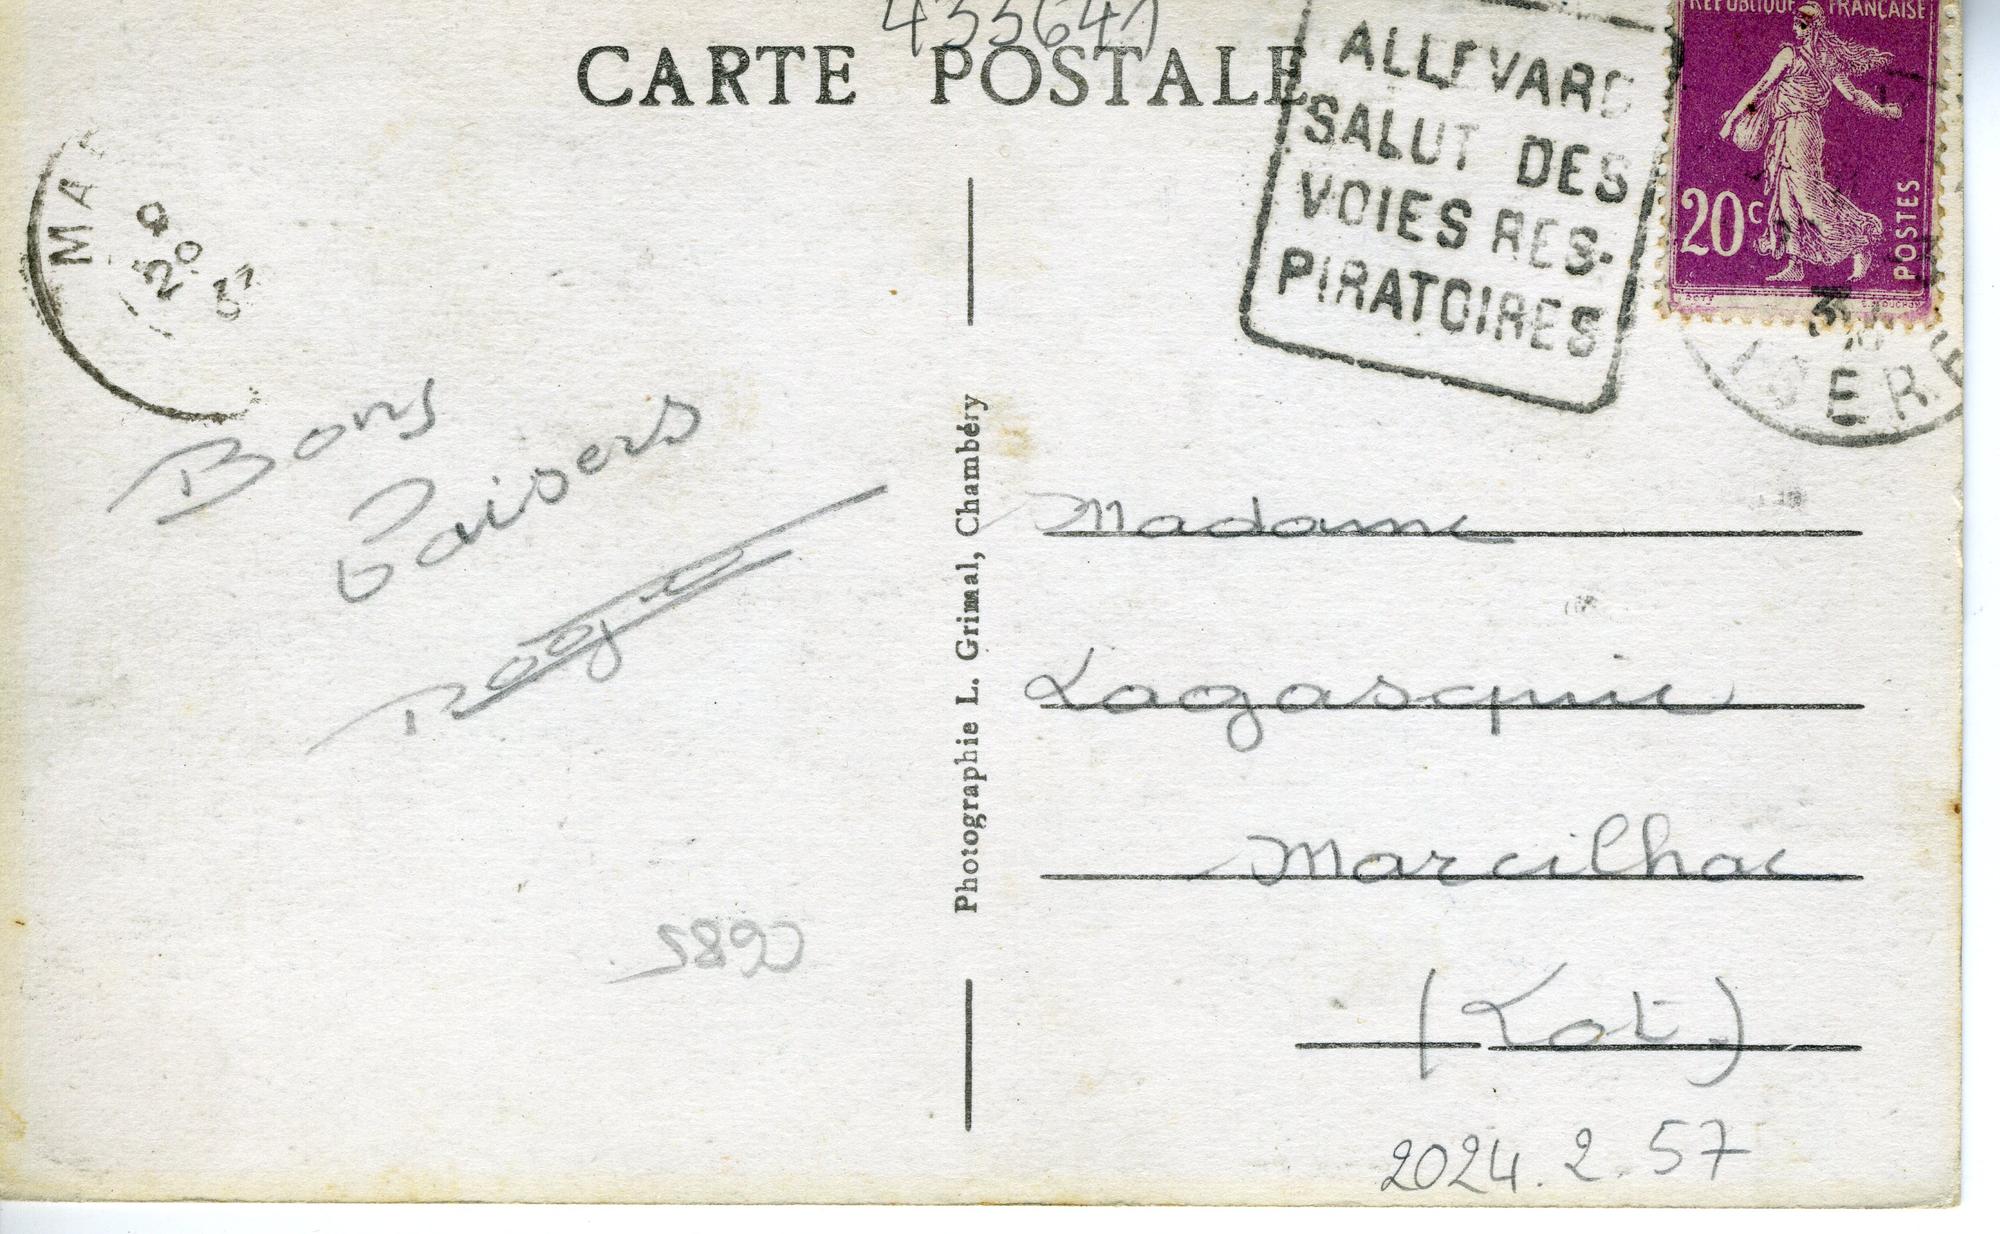 433641
CARTE POSTALE
ALLEVARD
SALUT DES
VOIES RES-
PIRATOIRES
REPUBLIQUE FRANÇAISE
20c
POSTES
ISERE
MAR
20
Bons
baisers
Photographie L. Grimal, Chambéry
Madame
Lagasquie
Marcilhac
(Lot)
2024.2.57